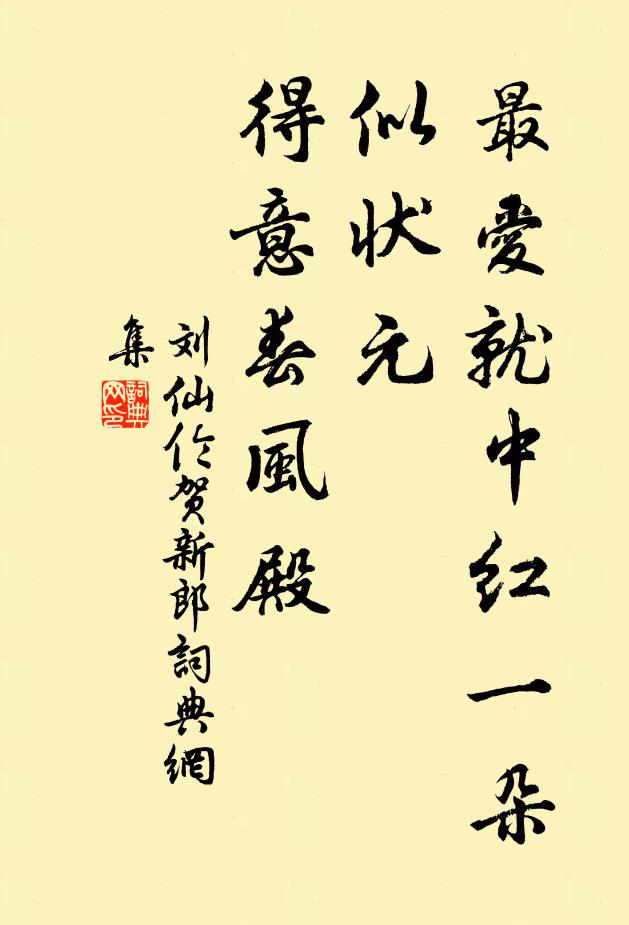 最愛就中红一朵
似状元
得意春風殿
刘仙伦贺新郎詞典網
集
詞典
网印